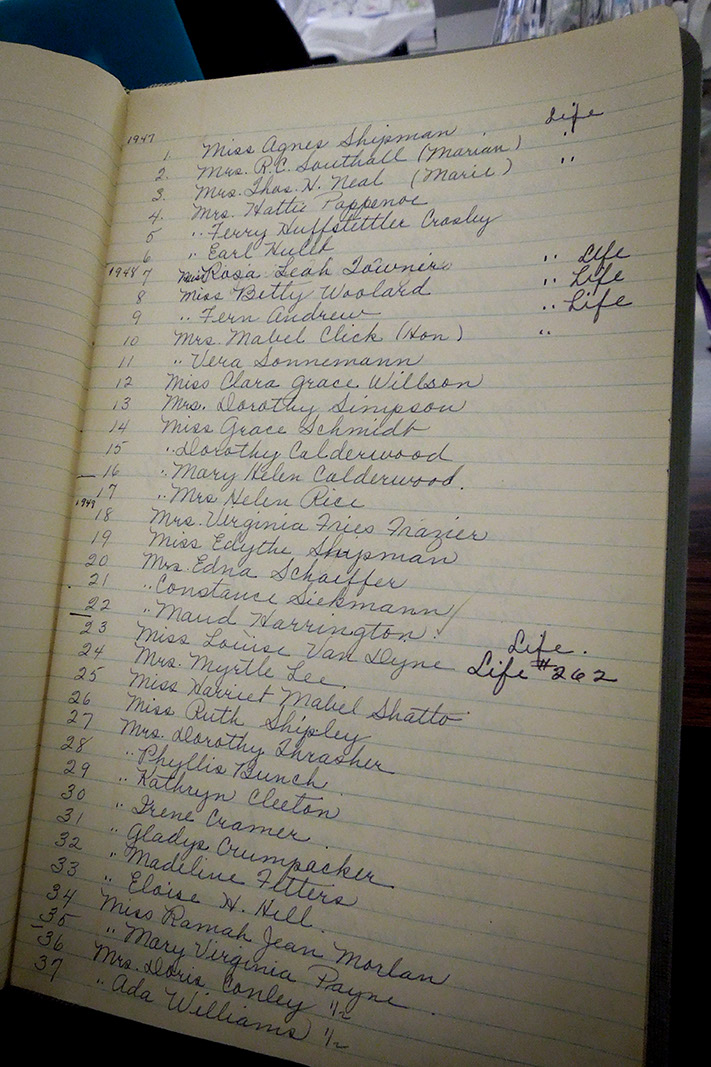 1947
1. Miss Agnes Shipman Life
2. Mrs. R.C. Southall (Marian) "
3. Mrs. Thos. N. Neal (Marie) "
4. Mrs. Hattie Poppenoe
5 " Ferry Huffstettler Crosley
6 " Earl Hulek
1948 7 Miss Rosa Leah Towner " Life
8 Miss Betty Woolard " Life
9 " Fern Andrew " Life
10 Mrs. Mabel Click (Hon) "
11 " Vera Sonnemann
12 Miss Clara Grace Willson
13 Mrs. Dorothy Simpson
14 Miss Grace Schmidt
15 " Dorothy Calderwood
16 " Mary Helen Calderwood.
17 " Mrs Helen Rice
1949 18 Mrs. Virginia Fries Frazier
19 Miss Edythe Shipman
20 Mrs. Edna Schaeffer
21 " Constance Siekmann
22 " Maud Harrington.
23 Miss Louise Van Dyne Life.
24 Mrs. Myrtle Lee Life #262
25 Miss Harriet Mabel Shatto
26 Miss Ruth Shipley
27 Mrs. Dorothy Thrasher
28 " Phyllis Bunch
29 " Kathryn Cleeton
30 " Irene Cramer
31 " Gladys Crumpacker
32 " Madeline Fetters
33 " Eloise H. Hill.
34 Miss Ramah Jean Morlan
35 " Mary Virginia Payne
36 Mrs. Doris Conley 1/2
37 " Ada Williams 1/2